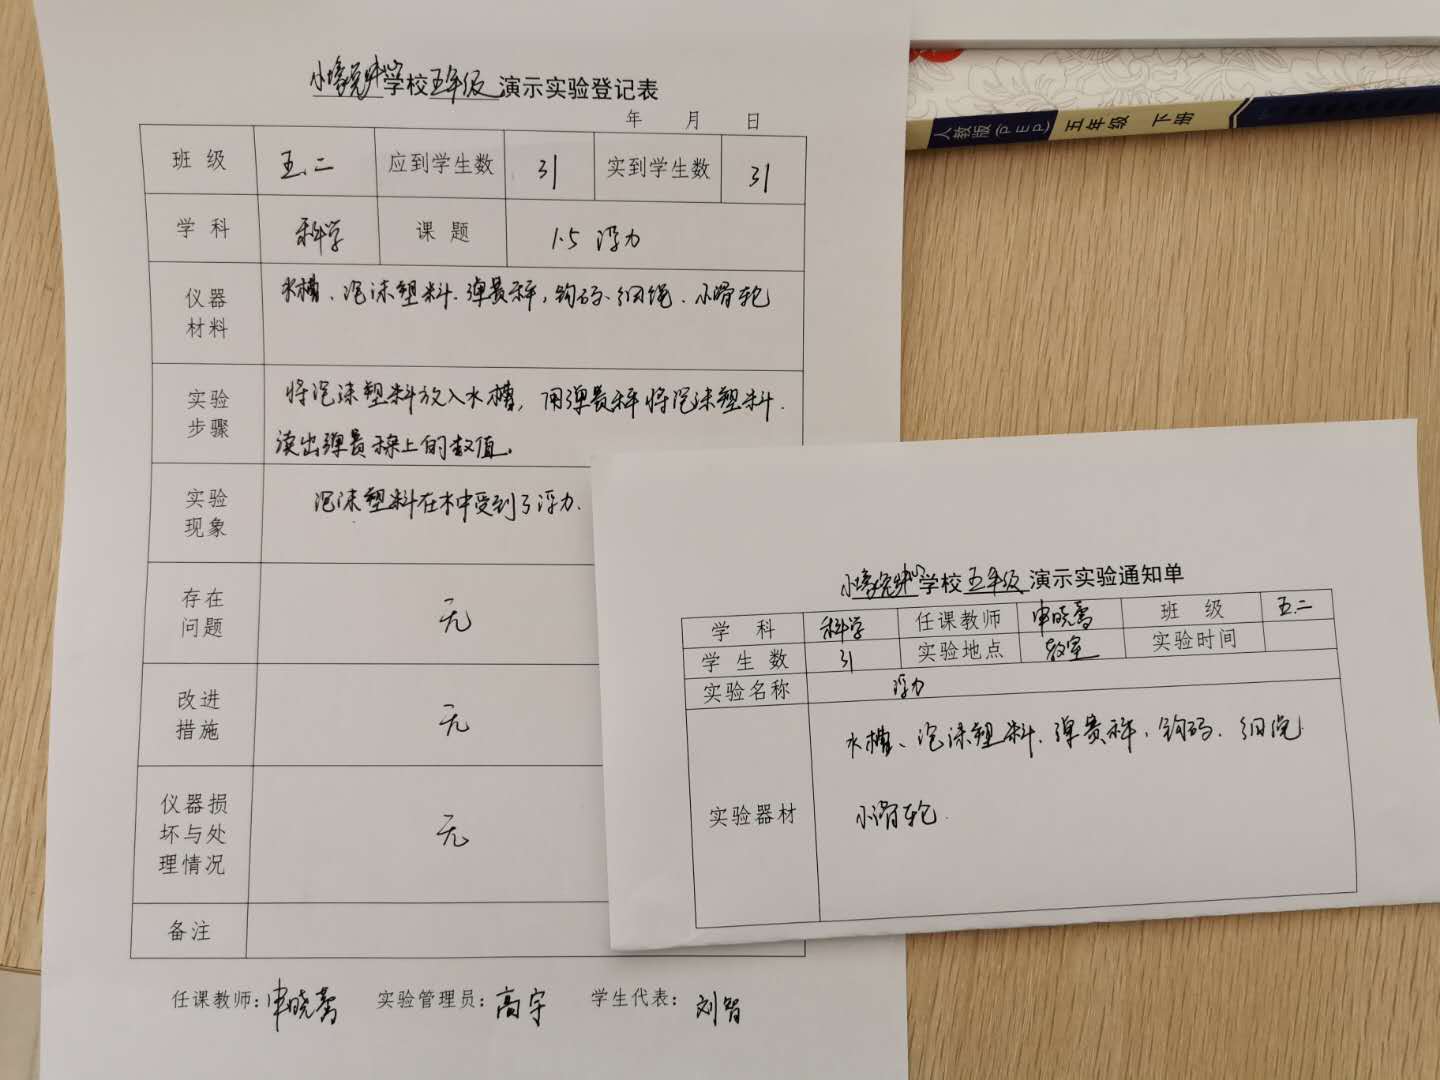 学校五年级 演示实验登记表
年 月 日
班 级 五.二 应到学生数 31 实到学生数 31
学 科 科学 课 题 1.5 浮力
仪器
材料
水槽、泡沫塑料、弹簧秤,钩码、细绳、小滑轮
实验
步骤
将泡沫塑料放入水槽,用弹簧秤将泡沫塑料.
读出弹簧秤上的数值。
实验
现象
泡沫塑料在水中受到了浮力.
存在
问题
无
改进
措施
无
仪器损
坏与处
理情况
无
备注
任课教师: 申晓 实验管理员: 高宇 学生代表: 刘智
人教版(PEP) 五年级 下册
学校五年级 演示实验通知单
学 科 科学 任课教师 申晓 班 级 五.二
学 生 数 31 实验地点 教室 实验时间
实验名称 浮力
实验器材
水槽、泡沫塑料、弹簧秤,钩码、细绳
小滑轮.